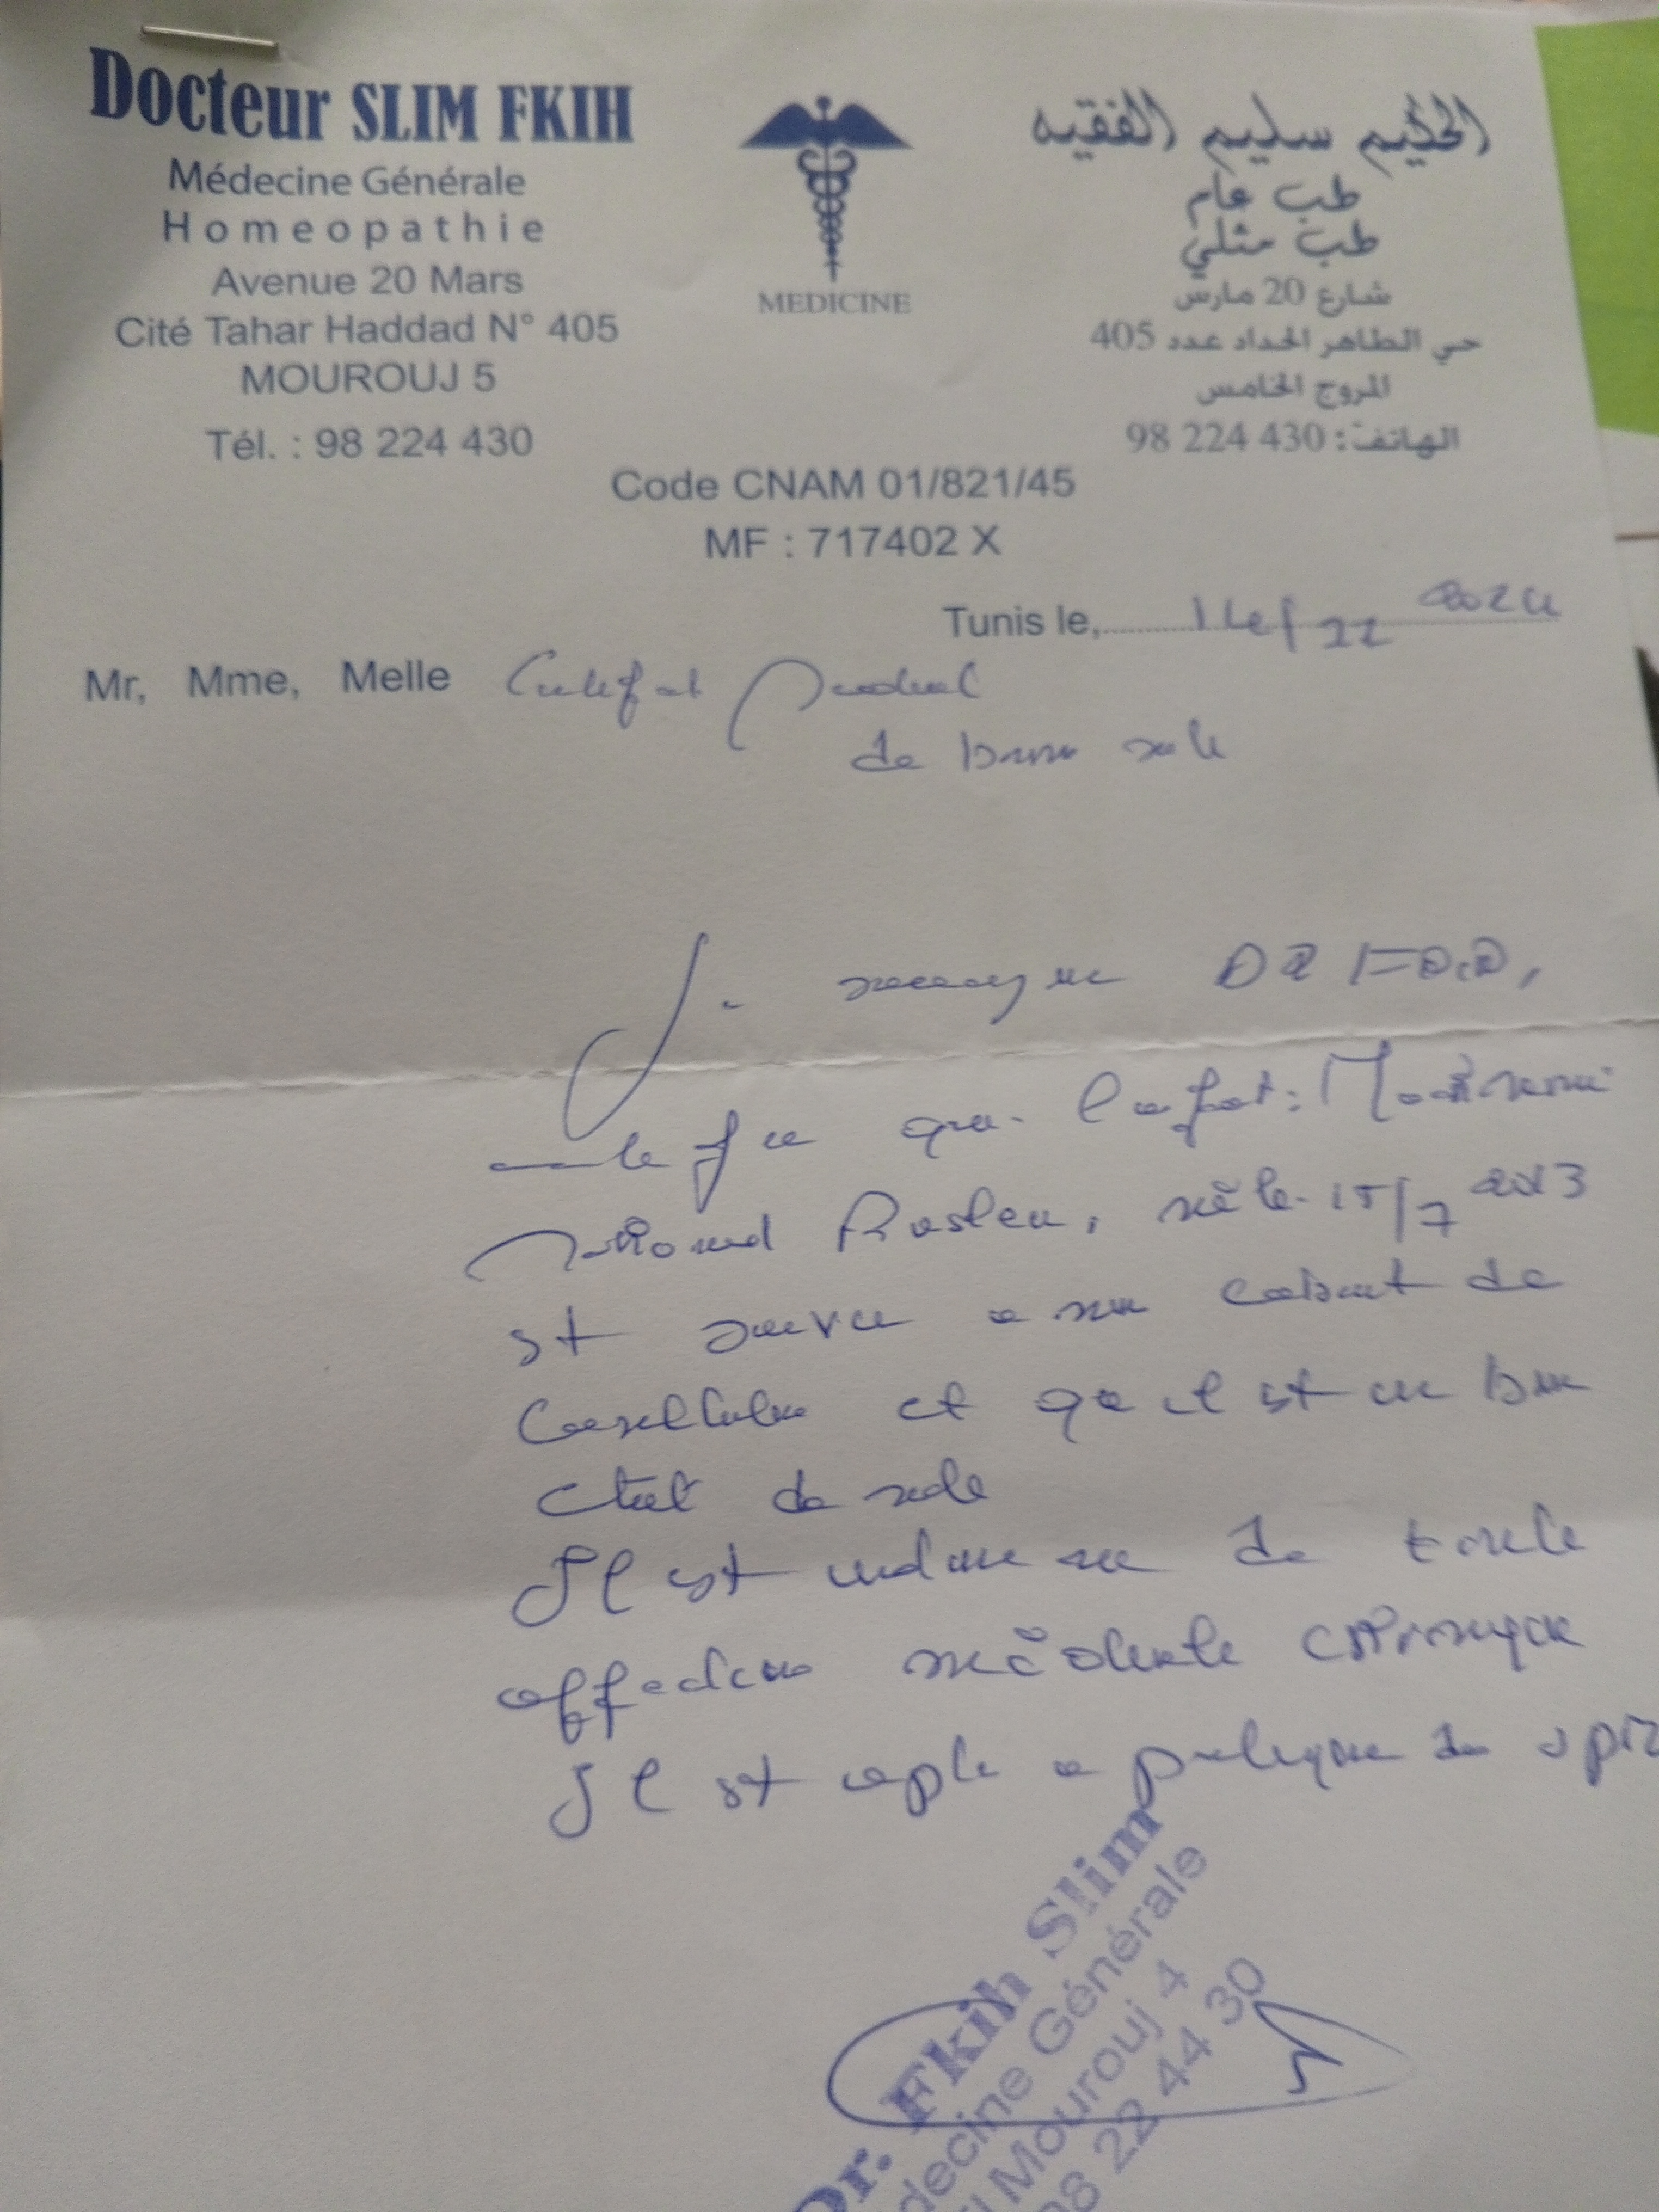 Docteur SLIM FKIH
Médecine Générale
Homeopathie
Avenue 20 Mars
Cité Tahar Haddad N° 405
MOUROUJ 5
Tél. : 98 224 430
MEDICINE
الحكيم سليم الفقيه
طب عام
طب مثلي
شارع 20 مارس
حي الطاهر الحداد عدد 405
المروج الخامس
الهاتف: 98 224 430
Code CNAM 01/821/45
MF : 717402 X
Tunis le, 2024
Mr, Mme, Melle Certificat Medical
de bonne sante
Je soussigne DR
certifie que l'enfant :
né le 15/7 2013
est suivi a mon cabinet de
Consultation et que il est en bon
etat de sante
Il est indemne de toute
affection médicale chronique
Il est apte a pratiquer de
Dr. Fkih Slim
decine Générale
Mourouj 4
98 22 44 30